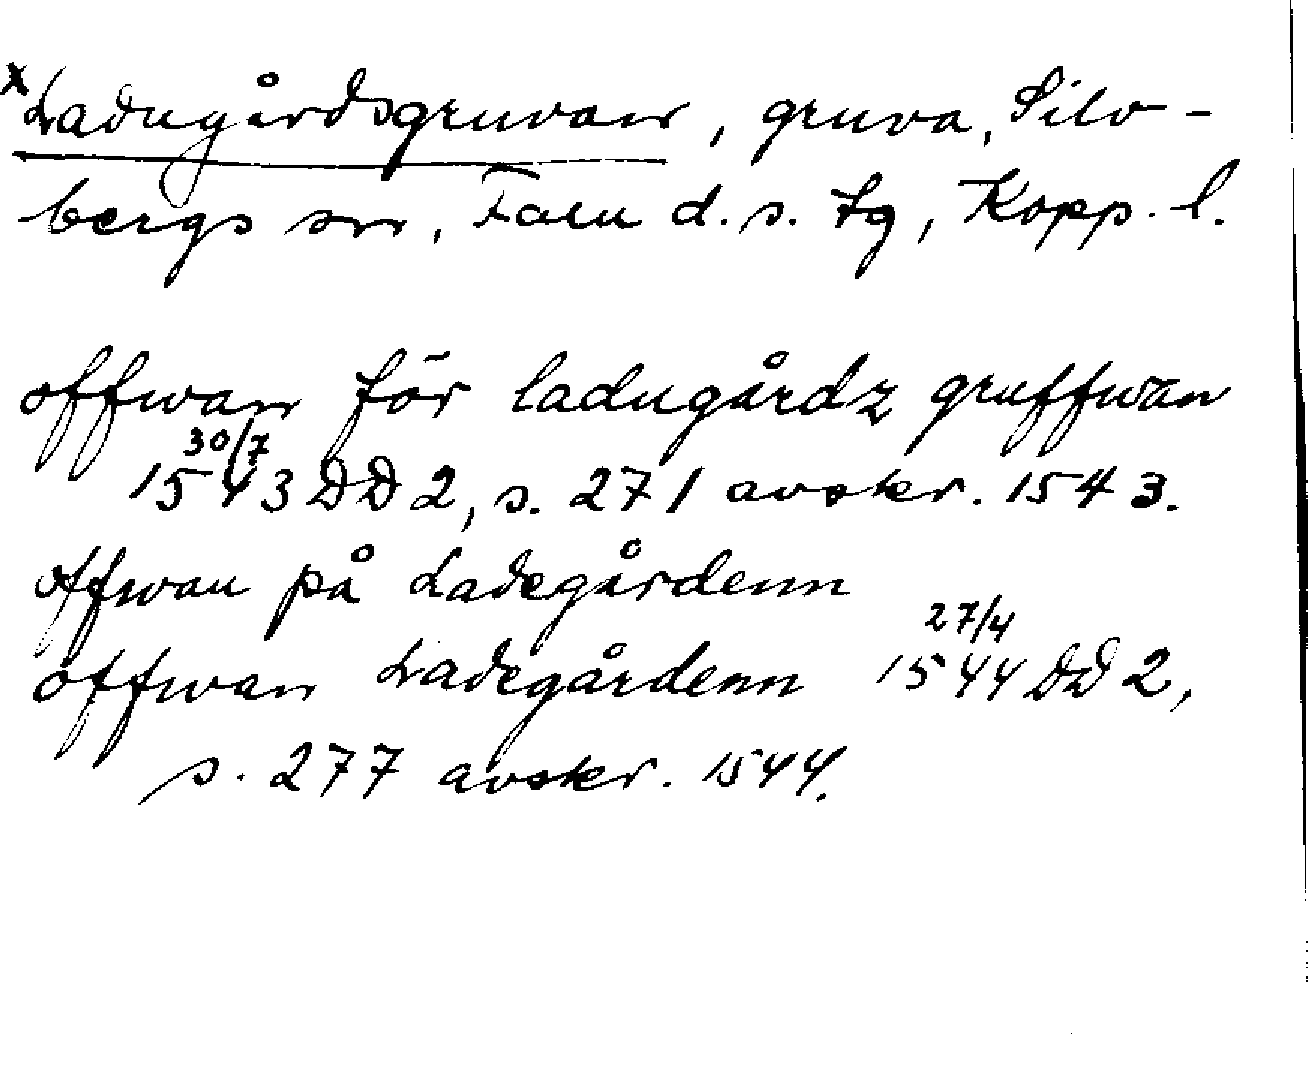 x Ladugårdsgruvan, gruva, Silv-
bergs sn, Falu d.s. tg, Kopp. l.
offwan för ladugårdz gruffwan
30/7
1543 DD 2, s. 271 avskr. 1543.
offwan på Ladegårdenn
27/4
offwan Ladegårdenn 1544 DD 2,
s. 277 avskr. 1544.